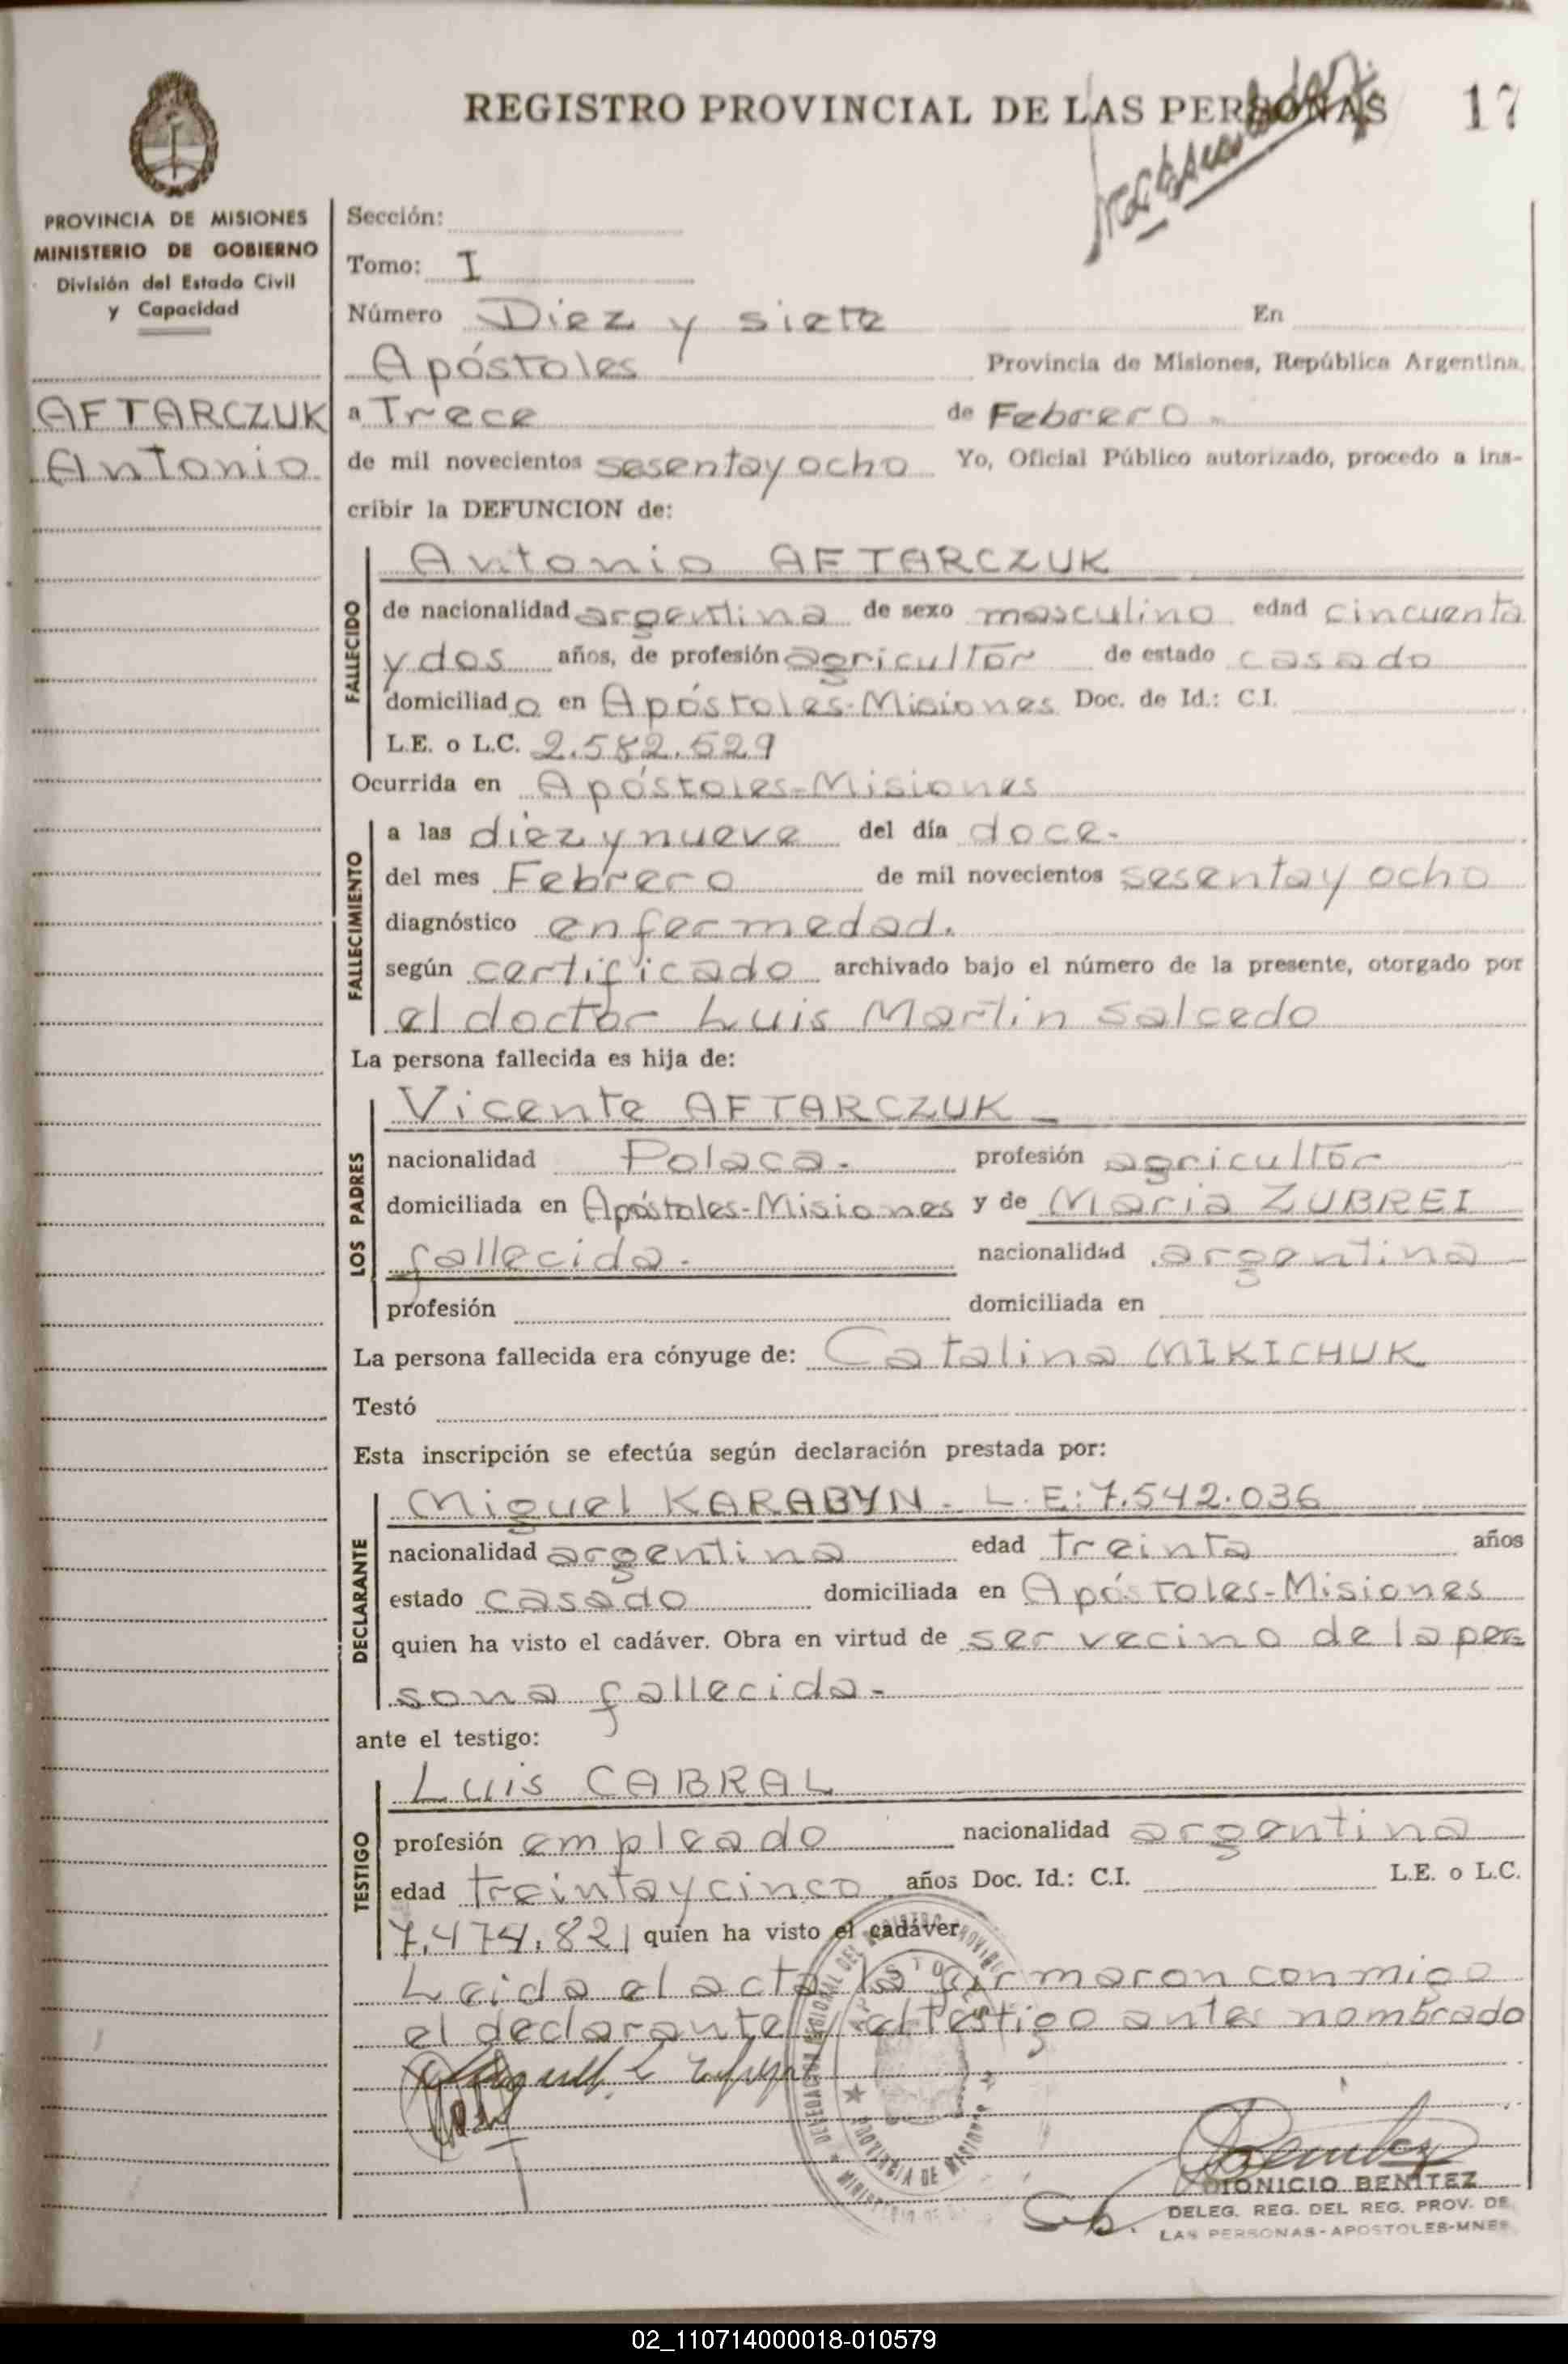 REGISTRO PROVINCIAL DE LAS PERSONAS 17
PROVINCIA DE MISIONES
MINISTERIO DE GOBIERNO
División del Estado Civil
y Capacidad
AFTARCZUK
Antonio
Sección:
Tomo: I
Número Diez y siete En
Apóstoles Provincia de Misiones, República Argentina,
a Trece de Febrero.
de mil novecientos sesenta y ocho Yo, Oficial Público autorizado, procedo a ins-
cribir la DEFUNCION de:
FALLECIDO
Antonio AFTARCZUK
de nacionalidad argentina de sexo masculino edad cincuenta
y dos años, de profesión agricultor de estado casado
domiciliado en Apóstoles-Misiones Doc. de Id.: C.I.
L.E. o L.C. 2.582.529
Ocurrida en Apóstoles-Misiones
FALLECIMIENTO
a las diez y nueve del día doce.
del mes Febrero de mil novecientos sesenta y ocho
diagnóstico enfermedad.
según certificado archivado bajo el número de la presente, otorgado por
el doctor Luis Martin Salcedo
La persona fallecida es hija de:
LOS PADRES
Vicente AFTARCZUK
nacionalidad Polaca. profesión agricultor
domiciliada en Apóstoles-Misiones y de Maria ZUBREI
fallecida. nacionalidad argentina
profesión domiciliada en
La persona fallecida era cónyuge de: Catalina MIKICHUK
Testó
Esta inscripción se efectúa según declaración prestada por:
DECLARANTE
Miguel KARABYN. L.E:7.542.036
nacionalidad argentina edad treinta años
estado casado domiciliada en Apóstoles-Misiones
quien ha visto el cadáver. Obra en virtud de ser vecino de la per=
sona fallecida.
ante el testigo:
TESTIGO
Luis CABRAL
profesión empleado nacionalidad argentina
edad treinta y cinco años Doc. Id.: C.I. L.E. o L.C.
7.474.821 quien ha visto el cadáver
Leida el acta la firmaron conmigo
el declarante y el testigo antes nombrado
DIONICIO BENITEZ
DELEG. REG. DEL REG. PROV. DE
LAS PERSONAS-APOSTOLES-MNES
02_110714000018-010579